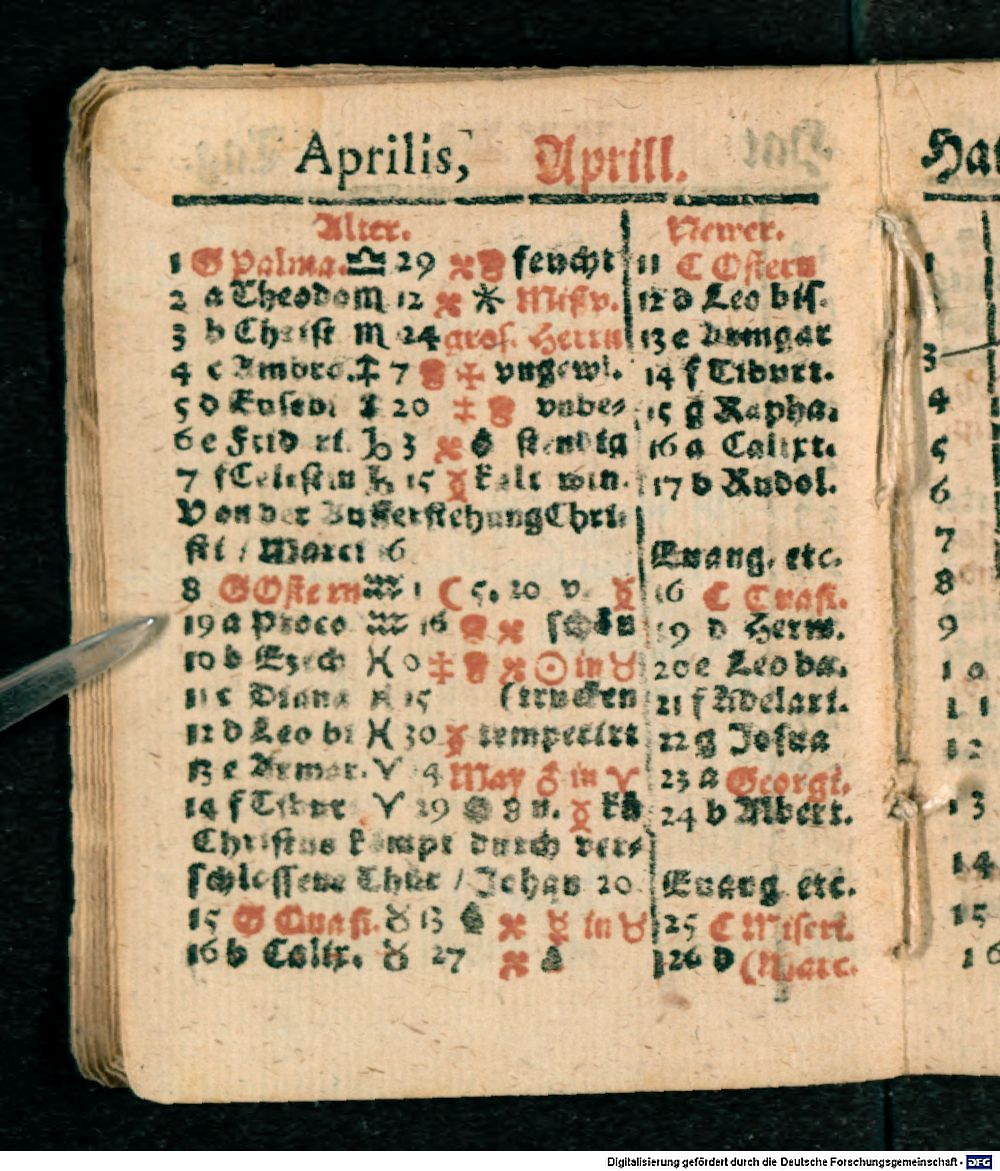 Aprilis, Aprill.
Alter. Newer.
1 G Palma. ♎ 29 feucht 11 C Ostern
2 a Theodo ♏ 12 ⚹ Mitw. 12 d Leo bis.
3 b Christ ♏ 24 gros. Herrn 13 e
4 c Ambro. ♐ 7 vngewi. 14 f Tiburt.
5 d Eusebi ♐ 20 vnbe⸗ 15 g Rapha.
6 e Frid ♑ 3 stendig 16 a Calixt.
7 f Celestin ♑ 15 ☿ kalt win. 17 b Rudol.
Von der Aufferstehung Chri⸗
sti / Marci 16 Euang. etc.
8 G Ostern ♒ 1 ☾ 5. 20 v. ☿ 16 C Quasi.
19 a Proco ♒ 16 schön 19 d Herm.
10 b Ezech ♓ 0 ☉ in ♉ 20 e Leo
11 c Diana ♓ 15 (trucken 21 f Adelari.
12 d Leo bi ♓ 30 ☿ temperirt 22 g Josua
13 e ♈ 4 May ♂ in ♈ 23 a Georgi.
14 f Tibur ♈ 29 8 n. ☿ kü 24 b Albert.
Christus kömpt durch ver⸗
schlossene Thür / Johan 20 Euang. etc.
15 G Quasi. ♉ 13 ☿ in ♉ 25 C Miseri.
16 b Calix. ♉ 27 26 d (Marc.
Hat
1
3
4
5
6
7
8
9
10
11
12
13
14
15
16
Digitalisierung gefördert durch die Deutsche Forschungsgemeinschaft - DFG